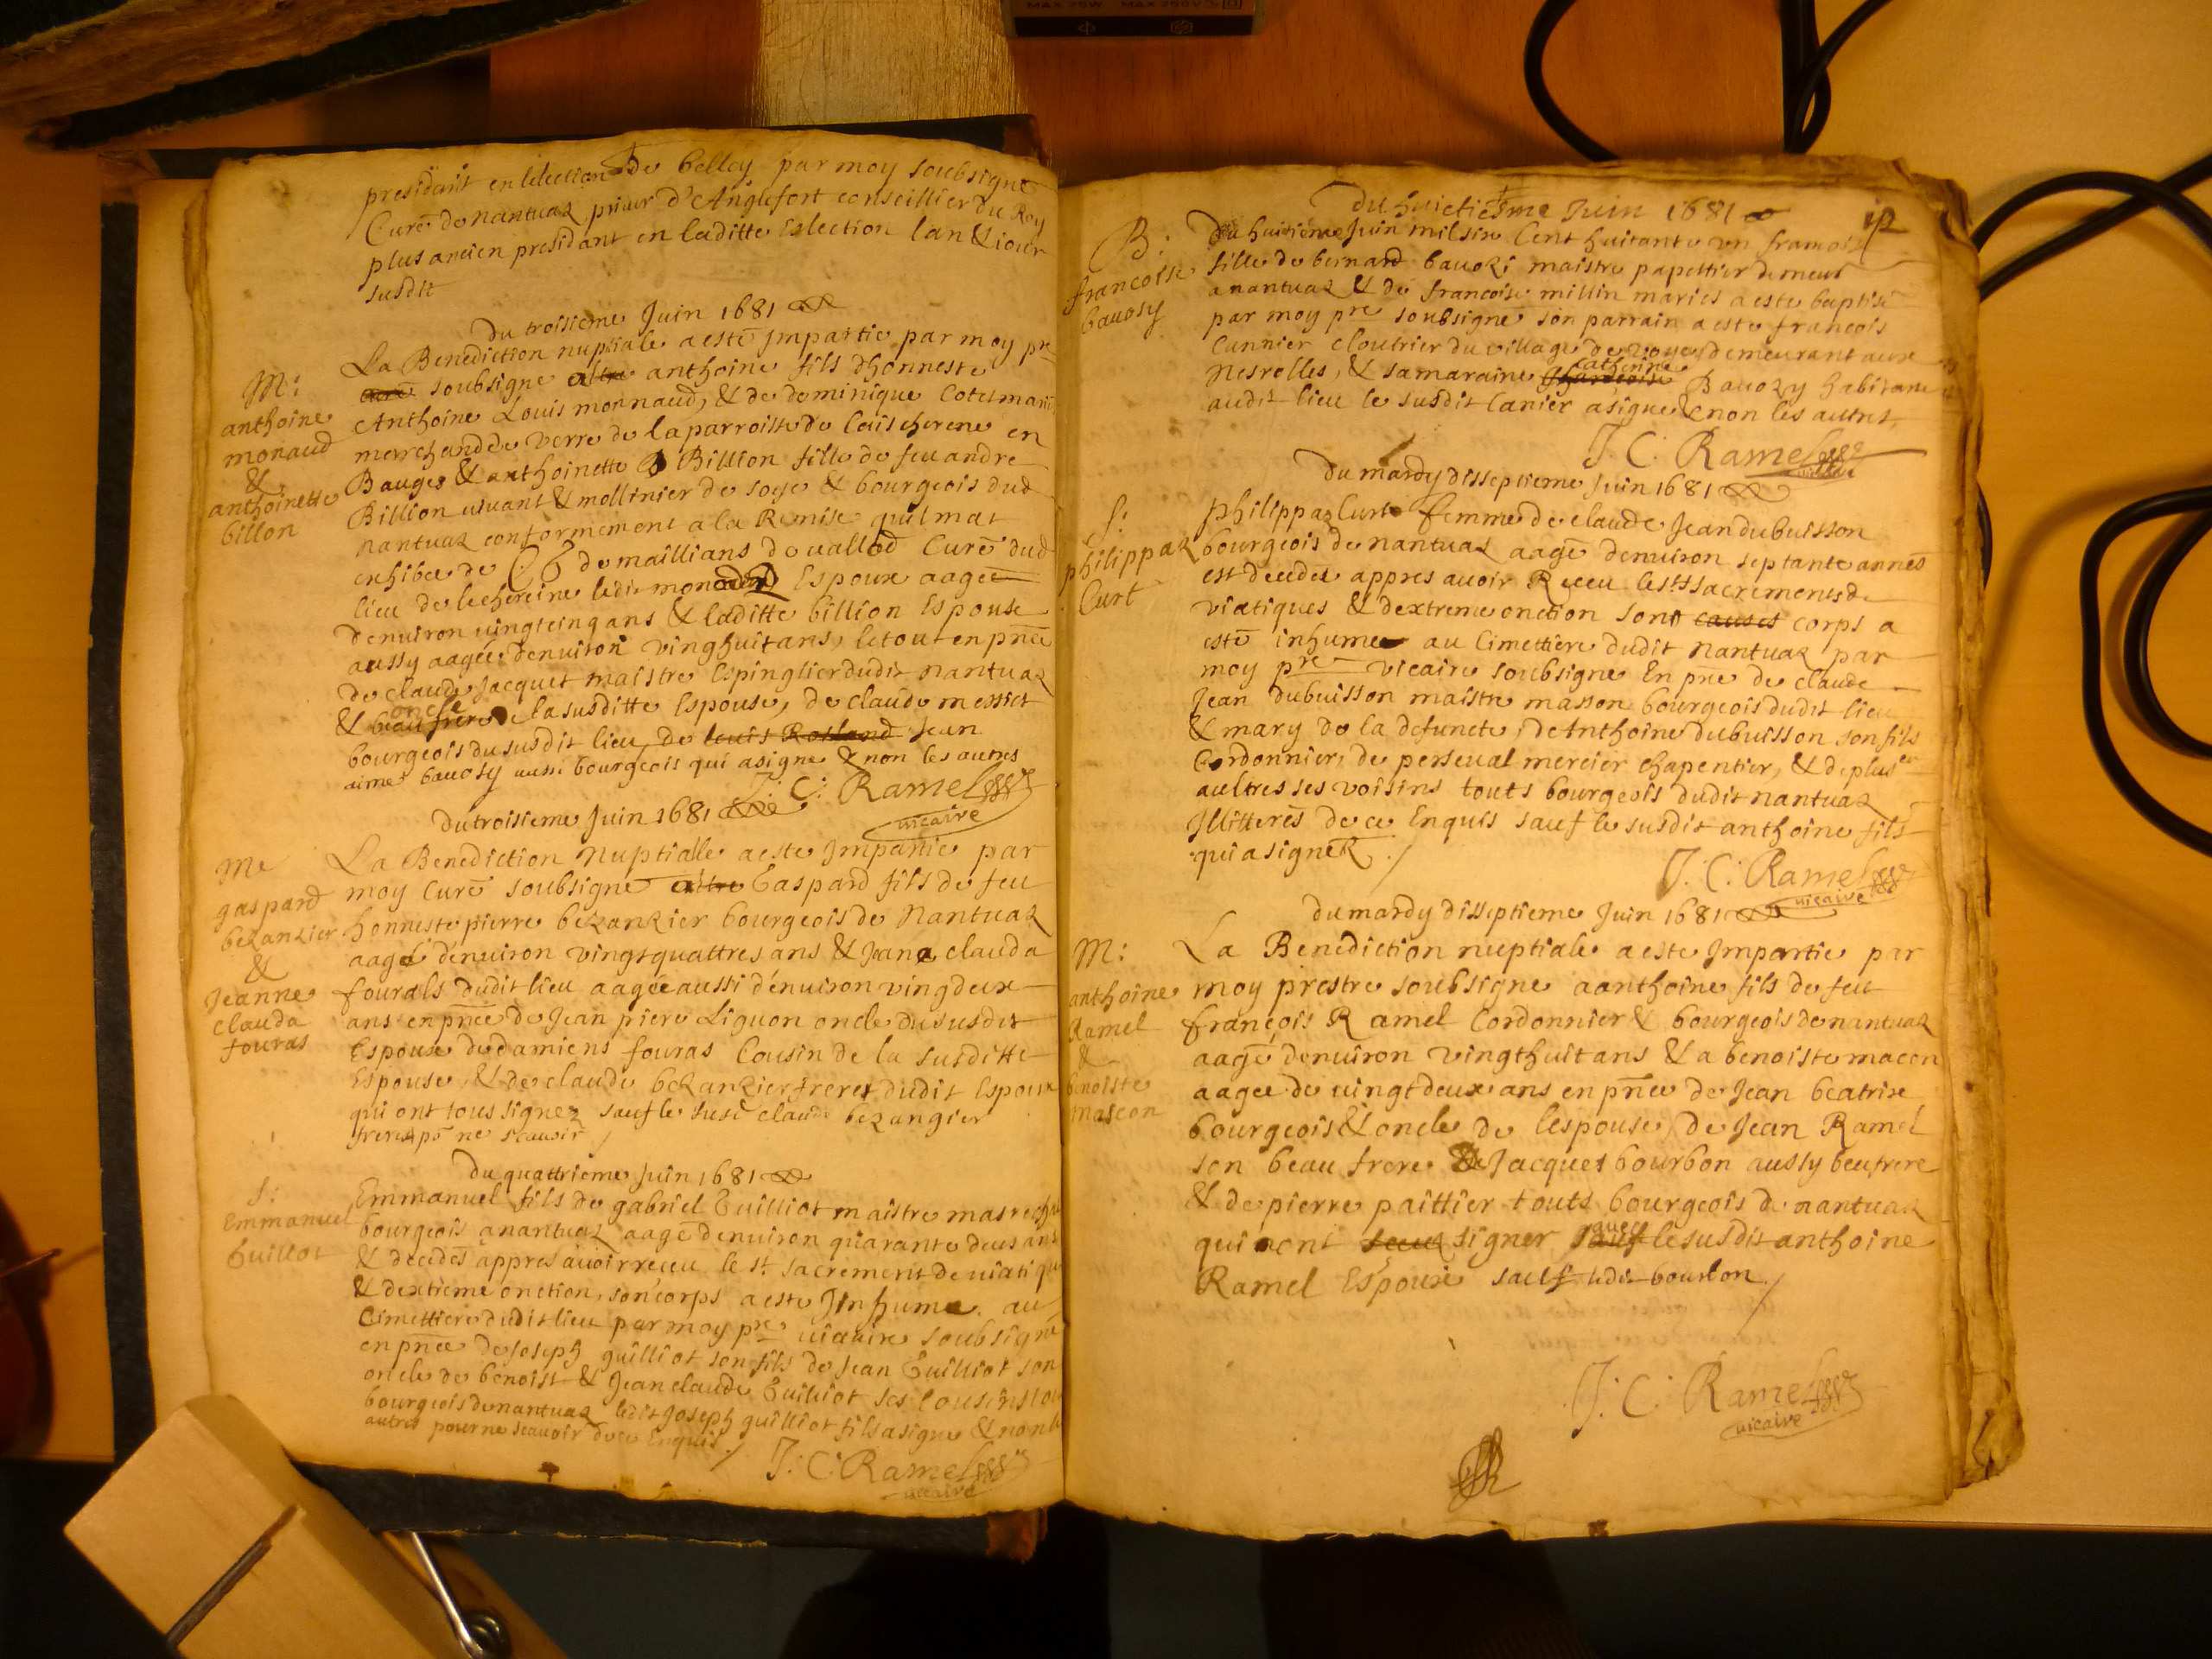 MAX 75W MAX 250V
presidant en lelection De belley par moy soubsigne
Curé de nantuaz prieur d'Anglefort conseillier du Roy
plus ancien presidant en laditte Eslection lan & iour
susdit
Du troisieme Juin 1681
M:
anthoine
monaud
&
anthoinette
billon
La Benediction nuptiale a esté Jmpartie par moy pre
curé soubsigne a anthoine fils dhonneste
Anthoine Louis monnaud, & de dominique
marchand de verre de la parroisse de en
Bauges & anthoinette Billion fille de feu andre
Billion vivant & mollinier de soye & bourgeois dud
nantuaz conformement a la Remise quil mat
exhibee de de maillians de uallod Curé dud
lieu de lechereine ledit Espoux aagee
denuiron uingtcinq ans & laditte billion Espouse
aussy aagée denuiron vinghuit ans, le tout en pñce
de claude Jacquet maistre Espinglier dudit nantuaz
& beau frere oncle de la susditte Espouse, de claude messiet
bourgeois du susdit lieu, de louis Rosland Jean
aime bauosy aussi bourgeois qui a signe & non les autres
J: C: Ramel
uicaire
Du troisieme Juin 1681
Me
gaspard
bezanzier
&
Jeanne
clauda
fouras
La Benediction Nuptialle a este Jmpartie par
moy Curé soubsigne a Gaspard fils de feu
honneste pierre bezanzier bourgeois de Nantuaz
aagé d'enuiron vingtquattres ans & Jeana clauda
fourals dudit lieu aagée aussi d'enuiron vingdeux
ans en pñce de Jean piere Liguon oncle du susdit
Espoux de damiens fouras Cousin de la susditte
Espouse, & de claude bezanzier freret dudit Espoux
qui ont tous signez sauf le susd claude bezangier
freret pr ne scauoir /
Du quattrieme Juin 1681
S:
Emmanuel
Guillot
Emmanuel fils de gabriel Guilliot maistre
bourgeois a nantuaz aagé denuiron quarante deus ans
& decedés appres auoir receu le st sacrement de uiatique
& dextreme onction, son corps a este Jnhume au
Cimettiere dudit lieu par moy pre uicaire soubsigné
en pñce de Joseph guilliot son fils de Jean Guilliot son
oncle de benoist & Jean claude Guilliot ses Cousins
bourgeois de nantuaz ledit Joseph guilliot fils a signe & non
autres pour ne scauoir de ce Enquis /
J: C: Ramel
uicaire
Du huictiesme Juin 1681
12
B:
francoise
bauosy
Du huitieme Juin mil six Cent huitante un francoise
fille de bernard bauozi maistre papettier demeur
a nantuaz & de francoise millin mariés a este baptisé
par moy pre soubsigne son parrain a este francois
Cunnier cloutrier du village de demeurant aux
Nesrolles, & sa maraine catherine Bauozy habitante
audit lieu le susdit Canier a signe & non les autres
J: C: Ramel
uicaire
Du mardy disseptieme Juin 1681
S:
philippaz
Curt
Philippaz Curt femme de claude Jean dubuisson
bourgeois de nantuaz aagé denuiron septante années
est decedee appres auoir Receu les sts sacrements de
viatiques & dextreme onction son causes corps a
esté inhumé au Cimettiere dudit nantuaz par
moy pre vicaire soubsigne En pñce de claude
Jean dubuisson maistre masson bourgeois dudit lieu
& mary de la defuncte, de Anthoine dubuisson son fils
Cordonnier, de perseual mercier chapentier, & de plusrs
aultres ses voisins touts bourgeois dudit nantuaz
Jllitterés de ce Enquis sauf le susdit anthoine fils
qui a signéz ./
J: C: Ramel
uicaire
Du mardy disseptieme Juin 1681
M:
anthoine
Ramel
&
benoiste
mascon
La Benediction nuptiale a este Jmpartie par
moy prestre soubsigne a anthoine fils de feu
françois Ramel Cordonnier & bourgeois de nantuaz
aagé denuiron vingthuit ans & a benoiste macon
aagee de uingtdeux ans en pñce de Jean beatrix
bourgeois & oncle de lespouse, de Jean Ramel
son beau frere & Jacques bourbon aussy beufrere
& de pierre paittier touts bourgeois de nantuaz
qui ont sceuz signer sauf auec le susdit anthoine
Ramel Espoux sauf ledit bourbon /
J: C: Ramel
uicaire